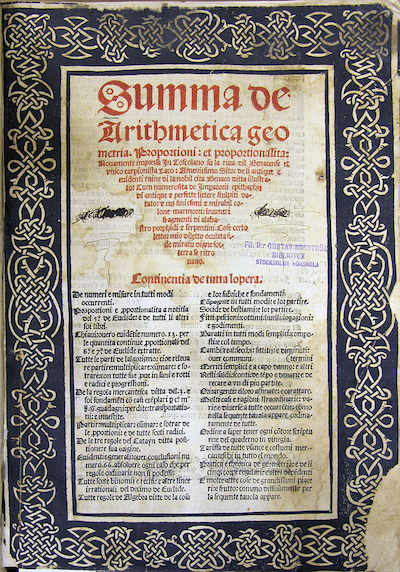 Summa de
Arithmetica geo
metria. Proportioni: et proportionalita:
Novamente impressa In Toscolano su la riva dil Benacense et
unico carpionista Laco: Amenissimo Sito: de li antique et
evidenti ruine di la nobil cita Benaco ditta illustra-
to: Cum numerosita de Imperatorii epithaphii
di antique et perfette littere sculpiti do-
tato: et cum finissimi et mirabil co-
lone marmorei: inumeri
fragmenti di alaba-
stro porphidi et serpentini. Cose certo
lettor mio diletto oculata fi-
de miratu digne sot-
terra se ritro-
vano.
Fil. D:r GUSTAF ENESTRÖMS
BIBLIOTEK
STOCKHOLMS HÖGSKOLA
Continentia de tutta lopera.
De numeri e misure in tutti modi
occurrenti.
Proportioni e proportionalita a notitia
del 5° de Euclide e de tutti li altri
soi libri.
Chiavi overo evidentie numero. 13. per
le quantita continue proportionali del
6° e 7° de Euclide extratte.
Tutte le parti de lalgorismo: cioe relevare
partire multiplicare: sumare e so-
trare con tutte sue prove in sani e rotti
e radici e progressioni.
De la regola mercantesca ditta del. 3. e
soi fondamenti
Partire multiplicar: sumare e sotrar de
le proportioni e de tutte sorti radici.
De le tre regole del Catayn ditta posi-
tione e sua origine.
Evidentie generali over conclusioni nu-
mero. 66. absolvere ogni caso che per
regole ordinarie non si podesse.
Tutte sorte binomii e recisi e altre linee
irrationali del decimo de Euclide.
Tutte regole de Algebra ditte de la cosa
e lor fabriche e fondamenti.
Compagnie in tutti modi e lor partire.
Socide de bestiami e lor partire.
e godimenti.
Baratti in tutti modi semplici composti
e col tempo.
Cambi reali secchi fittitii
over communi.
Meriti semplici e a capo danno e altri
termini
recare a un di piu partite.
Origini
Molti casi e ragioni straordinarie varie
e diverse a tutte occurrentie como
nella sequente tavola appare ordinata-
mente de tutte.
Ordine a saper tener ogni conto e scripture
e del quaderno in vinegia.
Tariffa de tutte usance e costumi mer-
canteschi in tutto el mondo.
Pratica e theorica de geometria e de li
cinque corpi regulari e altri dependenti
E molte altre cose de grandissimi piace-
ri e frutto: como diffusamente per
la sequente tavola appare.